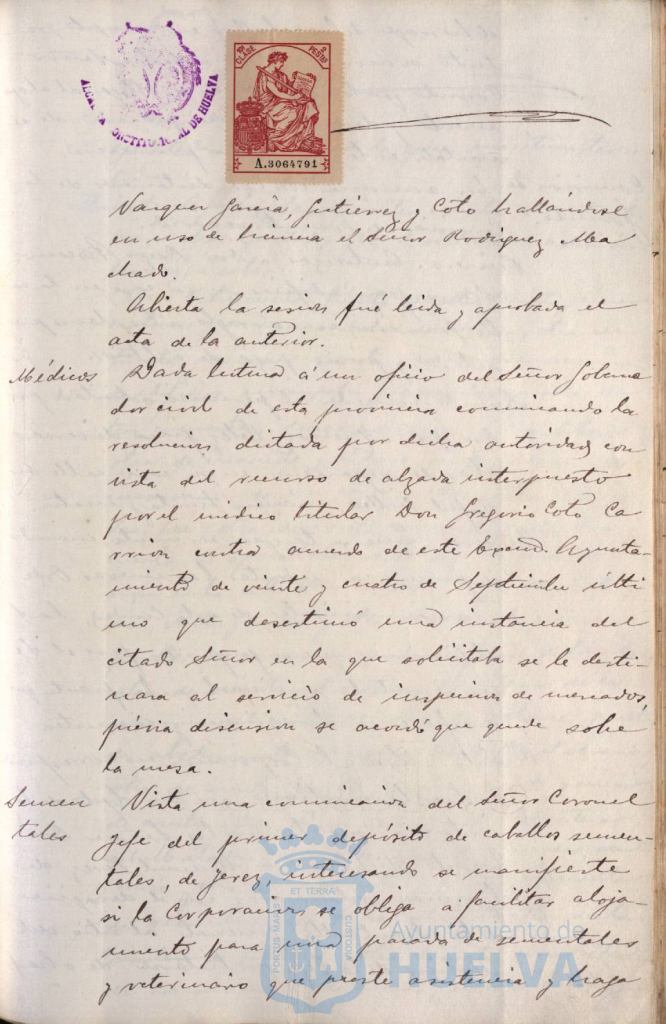 ALCALDIA CONSTITUCIONAL DE HUELVA
CLASE
PESETA
A.3064791
Vazquez Garcia, Gutierrez y Coto hallándose
en uso de licencia el Señor Rodriguez Ma
chado.
Abierta la sesion fué leida y aprobada el
acta de la anterior.
Médicos
Dada lectura á un oficio del Señor Goberna
dor civil de esta provincia comunicando la
resolucion dictada por dicha autoridad con
vista del recurso de alzada interpuesto
por el médico titular Don Gregorio Coto Ca
rrion contra acuerdo de este Excmo. Ayunta-
miento de veinte y cuatro de Septiembre últi
mo que desestimó una instancia del
citado Señor en la que solicitaba se le desti-
nara al servicio de inspeccion de mercados,
prévia discusion se acordó que quede sobre
la mesa.
Semen
tales
Vista una comunicacion del Señor Coronel
Jefe del primer depósito de caballos semen-
tales, de Jerez, interesando se manifieste
si la Corporacion se obliga a facilitar aloja-
miento para una parada de sementales
y veterinario que preste asistencia y haga
PORTUS MARIS ET TERRÆ CUSTODIA
Ayuntamiento de
HUELVA